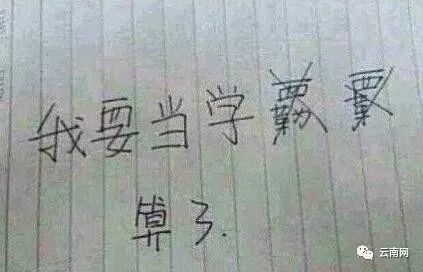 我要当学
算了.
云南网